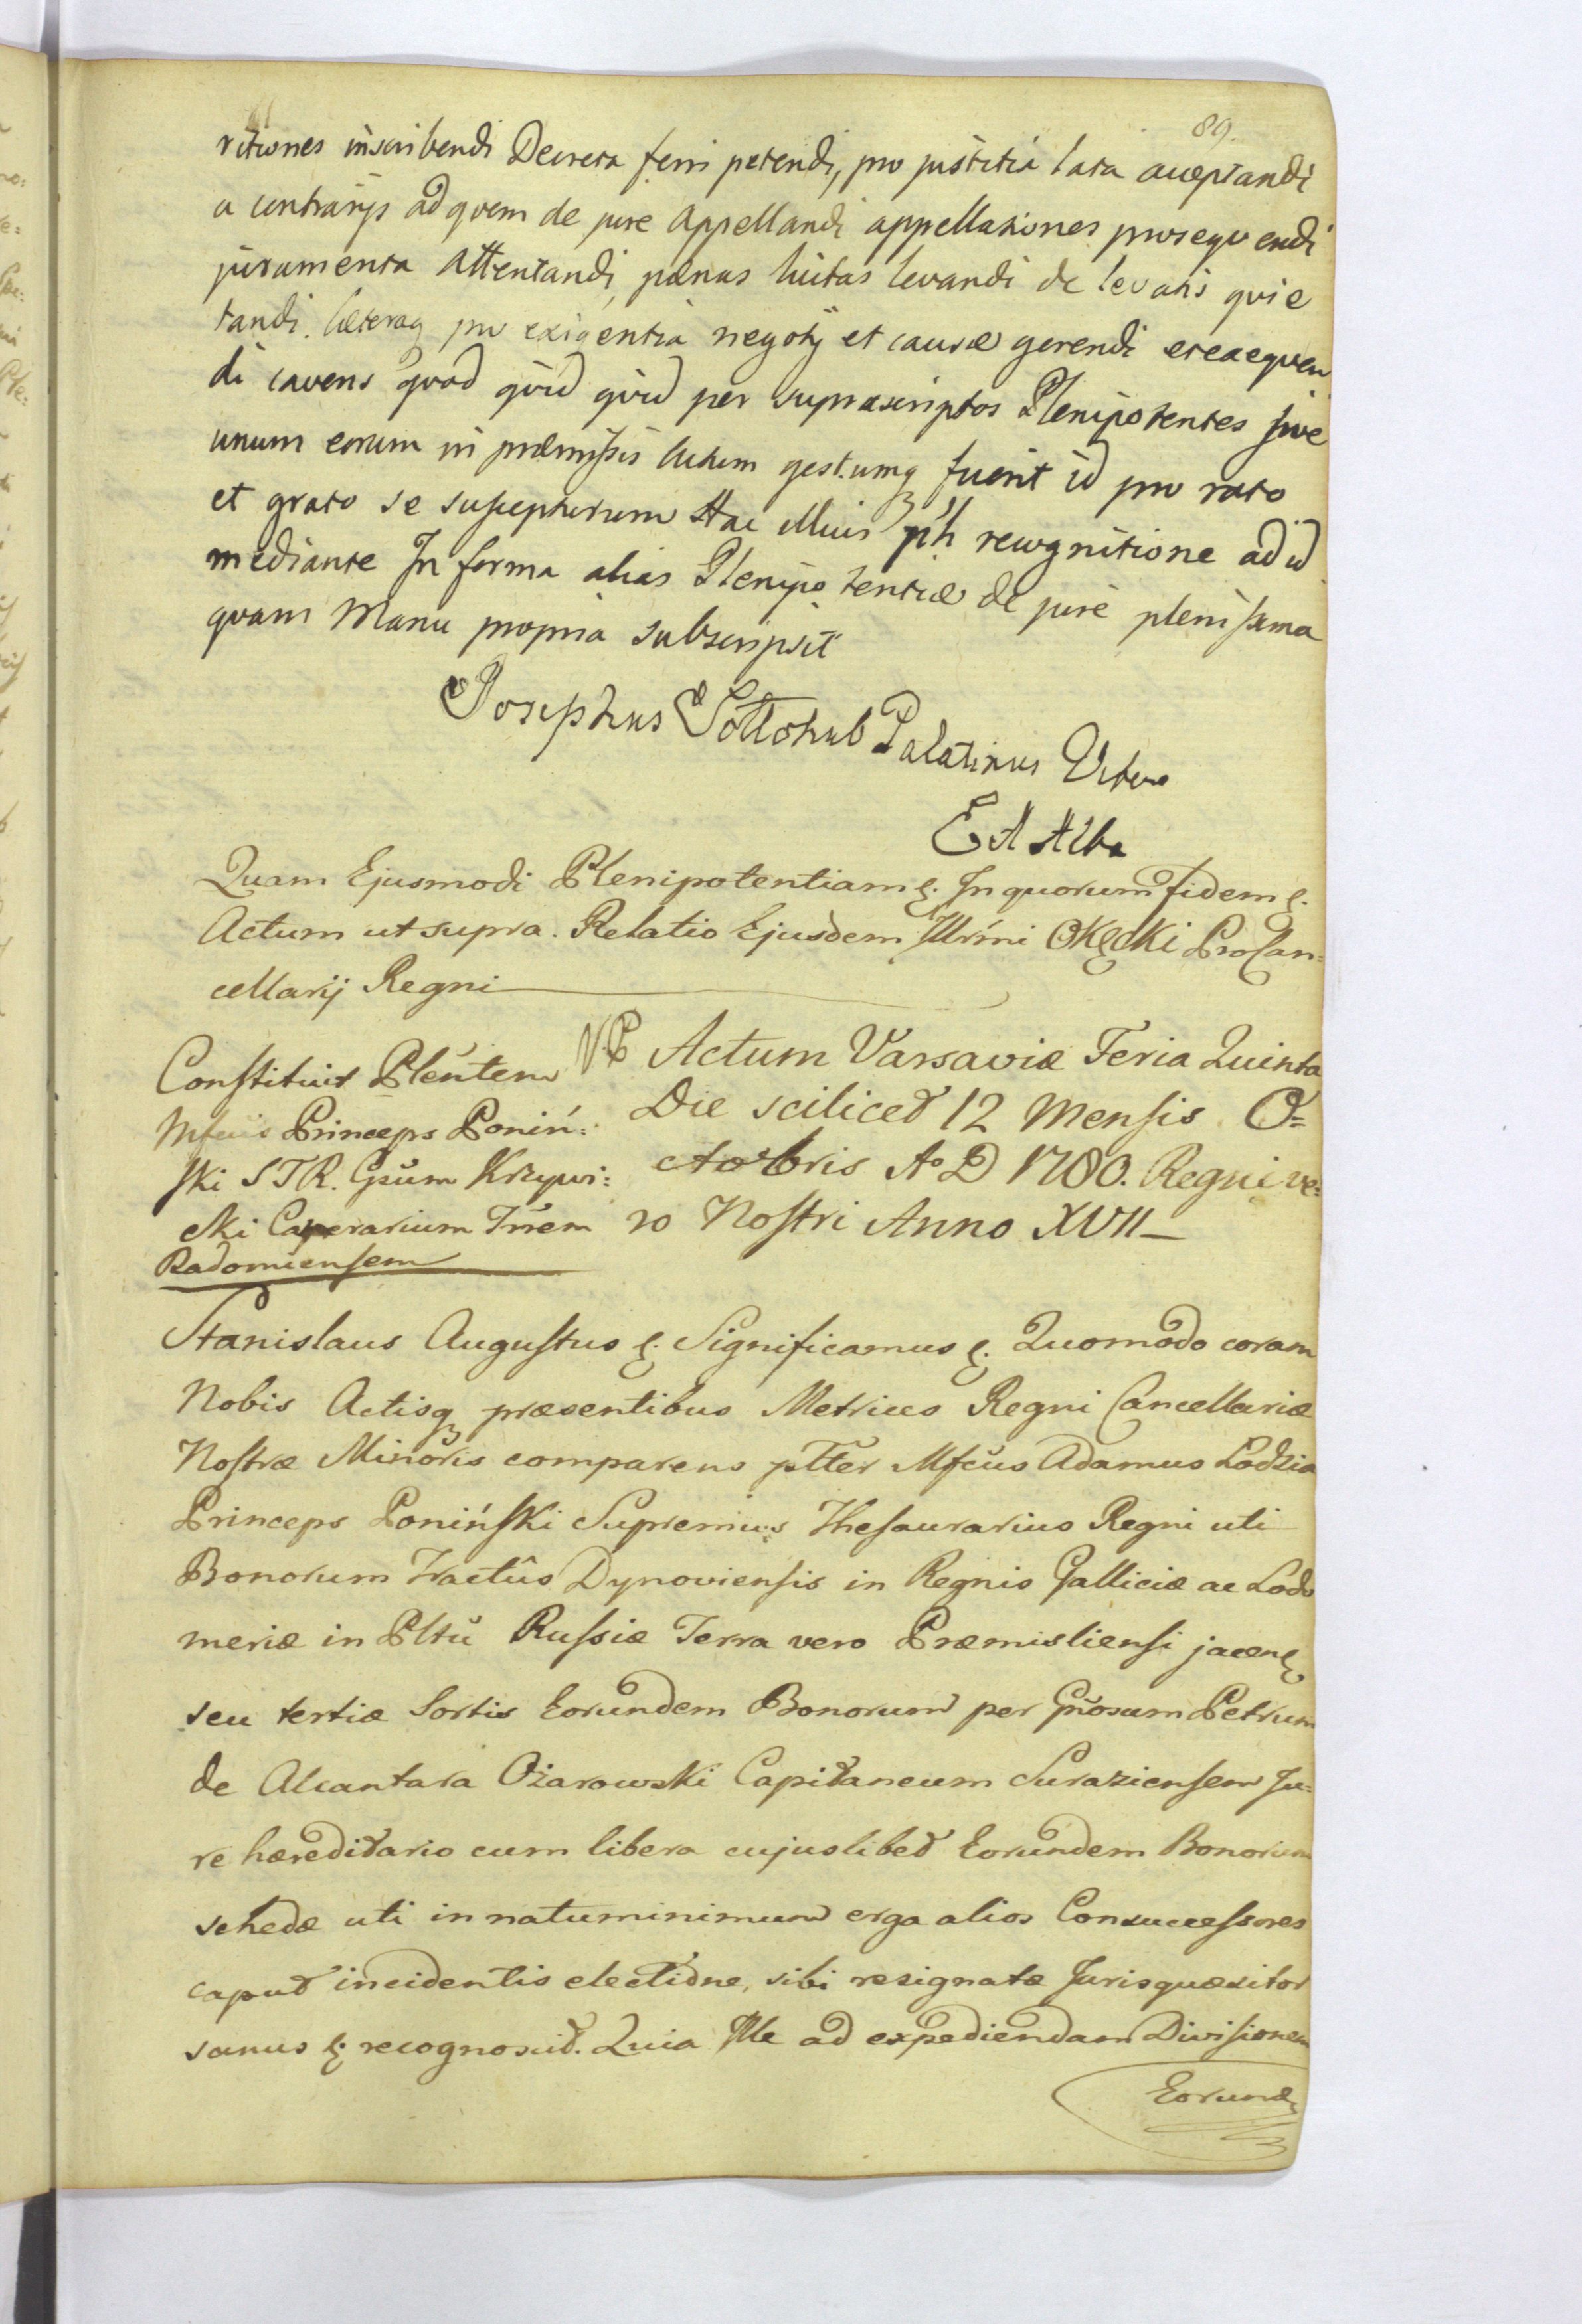 89.
ritiones inscribendi Decreta ferri petendi, pro justitia lata acceptandi
a contrarijs ad quem de jure Appellandi appellationes prosequendi
juramenta Attentandi, pœnas luitas levandi de levatis quie
tandi. Cæteraq pro exigentia negotij et causæ gerendi exeaequen
di cavens quod quid quid per suprascriptos Plenipotentes sive
unum eorum in præmissis Actum gestumq fuerit id pro rato
et grato se suscepturum Hac Mnis recognitione ad id
mediante In forma alias Plenipotentiæ de jure plenissima
quam Manu propria subscripsit
Josephus Sołłohub Palatinus Viteb
Et Alba
Quam Ejusmodi Plenipotentiam &. In quorum fidem &.
Actum ut supra. Relatio Ejusdem Illrmi Okęcki ProCan=
cellarij Regni
Constituit Plentem
Mfcus Princeps Poniń:
ski S T R. Gsum Krzywi:
cki Camerarium Trrem
Radomiensem
N.P Actum Varsaviæ Feria Quinta
Die scilicet 12 Mensis O=
ctobris Ao D 1780. Regni ve:
ro Nostri Anno XVII
Stanislaus Augustus &. Significamus &. Quomodo coram
Nobis Actisq præsentibus Metrices Regni Cancellariæ
Nostræ Minoris comparens pltter Mfcus Adamus Lodzia
Princeps Poniński Supremus Thesaurarius Regni uti
Bonorum Tractûs Dynoviensis in Regnis Galliciæ ac Lodo
meriæ in Pltũ Russiæ Terra vero Præmisliensi jacen&
seu tertiæ Sortis Eorundem Bonorum per Gnosum Petrum
de Alcantara Ożarowski Capitaneum Suraziensem Ju=
re hæreditario cum libera cujuslibet Eorundem Bonorum
schedæ uti in natuminimum erga alios Consuccessores
caput incidentis electione, sibi resignatæ Jurisquæsitor
sanus &. recognovit. Quia Ille ad expediendam Divisionem
Eorund&